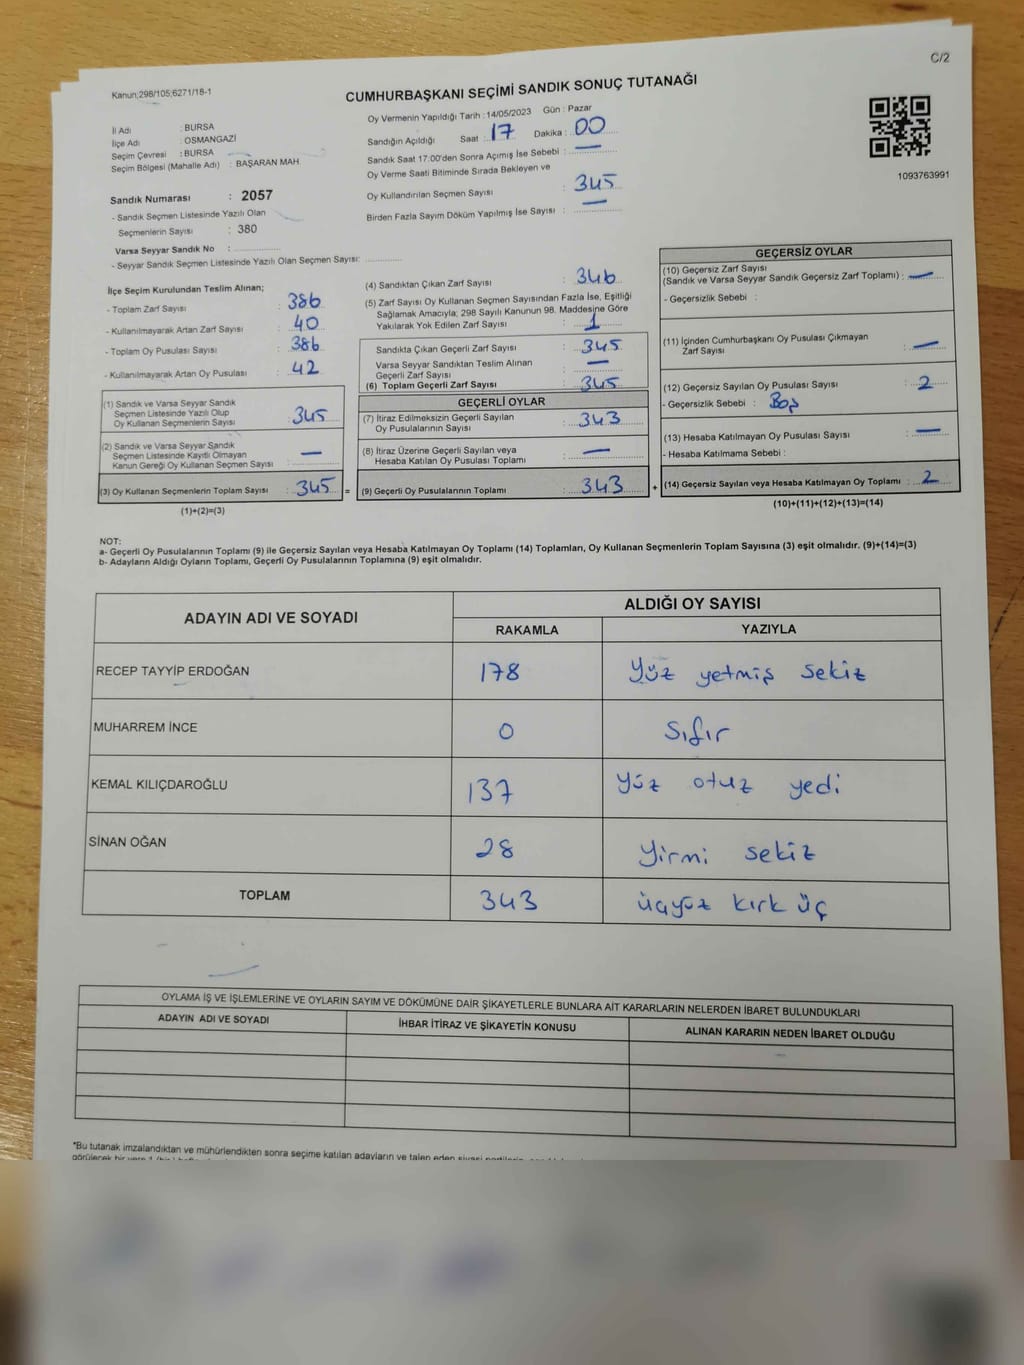 C/2
Kanun;298/105;6271/18-1
CUMHURBAŞKANI SEÇİMİ SANDIK SONUÇ TUTANAĞI
İl Adı : BURSA
İlçe Adı : OSMANGAZİ
Seçim Çevresi : BURSA
Seçim Bölgesi (Mahalle Adı) : BAŞARAN MAH
Sandık Numarası : 2057
- Sandık Seçmen Listesinde Yazılı Olan
Seçmenlerin Sayısı : 380
Varsa Seyyar Sandık No :
- Seyyar Sandık Seçmen Listesinde Yazılı Olan Seçmen Sayısı:
Oy Vermenin Yapıldığı Tarih : 14/05/2023 Gün : Pazar
Sandığın Açıldığı Saat : 17 Dakika : 00
Sandık Saat 17:00'den Sonra Açımış İse Sebebi : —
Oy Verme Saati Bitiminde Sırada Bekleyen ve
Oy Kullandırılan Seçmen Sayısı : 345
Birden Fazla Sayım Döküm Yapılmış İse Sayısı : —
1093763991
İlçe Seçim Kurulundan Teslim Alınan;
- Toplam Zarf Sayısı : 386
- Kullanılmayarak Artan Zarf Sayısı : 40
- Toplam Oy Pusulası Sayısı : 386
- Kullanılmayarak Artan Oy Pusulası : 42
(1) Sandık ve Varsa Seyyar Sandık
Seçmen Listesinde Yazılı Olup
Oy Kullanan Seçmenlerin Sayısı : 345
(2) Sandık ve Varsa Seyyar Sandık
Seçmen Listesinde Kayıtlı Olmayan
Kanun Gereği Oy Kullanan Seçmen Sayısı : —
(3) Oy Kullanan Seçmenlerin Toplam Sayısı : 345 =
(1)+(2)=(3)
(4) Sandıktan Çıkan Zarf Sayısı : 346
(5) Zarf Sayısı Oy Kullanan Seçmen Sayısından Fazla İse, Eşitliği
Sağlamak Amacıyla; 298 Sayılı Kanunun 98. Maddesine Göre
Yakılarak Yok Edilen Zarf Sayısı : 1
Sandıkta Çıkan Geçerli Zarf Sayısı : 345
Varsa Seyyar Sandıktan Teslim Alınan
Geçerli Zarf Sayısı : —
(6) Toplam Geçerli Zarf Sayısı : 345
GEÇERLİ OYLAR
(7) İtiraz Edilmeksizin Geçerli Sayılan
Oy Pusulalarının Sayısı : 343
(8) İtiraz Üzerine Geçerli Sayılan veya
Hesaba Katılan Oy Pusulası Toplamı : —
(9) Geçerli Oy Pusulalarının Toplamı : 343 +
GEÇERSİZ OYLAR
(10) Geçersiz Zarf Sayısı
(Sandık ve Varsa Seyyar Sandık Geçersiz Zarf Toplamı) : —
- Geçersizlik Sebebi :
(11) İçinden Cumhurbaşkanı Oy Pusulası Çıkmayan
Zarf Sayısı : —
(12) Geçersiz Sayılan Oy Pusulası Sayısı : 2
- Geçersizlik Sebebi : Boş
(13) Hesaba Katılmayan Oy Pusulası Sayısı : —
- Hesaba Katılmama Sebebi :
(14) Geçersiz Sayılan veya Hesaba Katılmayan Oy Toplamı : 2
(10)+(11)+(12)+(13)=(14)
NOT:
a- Geçerli Oy Pusulalarının Toplamı (9) ile Geçersiz Sayılan veya Hesaba Katılmayan Oy Toplamı (14) Toplamları, Oy Kullanan Seçmenlerin Toplam Sayısına (3) eşit olmalıdır. (9)+(14)=(3)
b- Adayların Aldığı Oyların Toplamı, Geçerli Oy Pusulalarının Toplamına (9) eşit olmalıdır.
ADAYIN ADI VE SOYADI ALDIĞI OY SAYISI
RAKAMLA YAZIYLA
RECEP TAYYİP ERDOĞAN 178 Yüz yetmiş sekiz
MUHARREM İNCE 0 Sıfır
KEMAL KILIÇDAROĞLU 137 Yüz otuz yedi
SİNAN OĞAN 28 Yirmi sekiz
TOPLAM 343 üçyüz kırk üç
OYLAMA İŞ VE İŞLEMLERİNE VE OYLARIN SAYIM VE DÖKÜMÜNE DAİR ŞİKAYETLERLE BUNLARA AİT KARARLARIN NELERDEN İBARET BULUNDUKLARI
ADAYIN ADI VE SOYADI İHBAR İTİRAZ VE ŞİKAYETİN KONUSU ALINAN KARARIN NEDEN İBARET OLDUĞU
*Bu tutanak imzalandıktan ve mühürlendikten sonra seçime katılan adayların ve talep eden siyasi